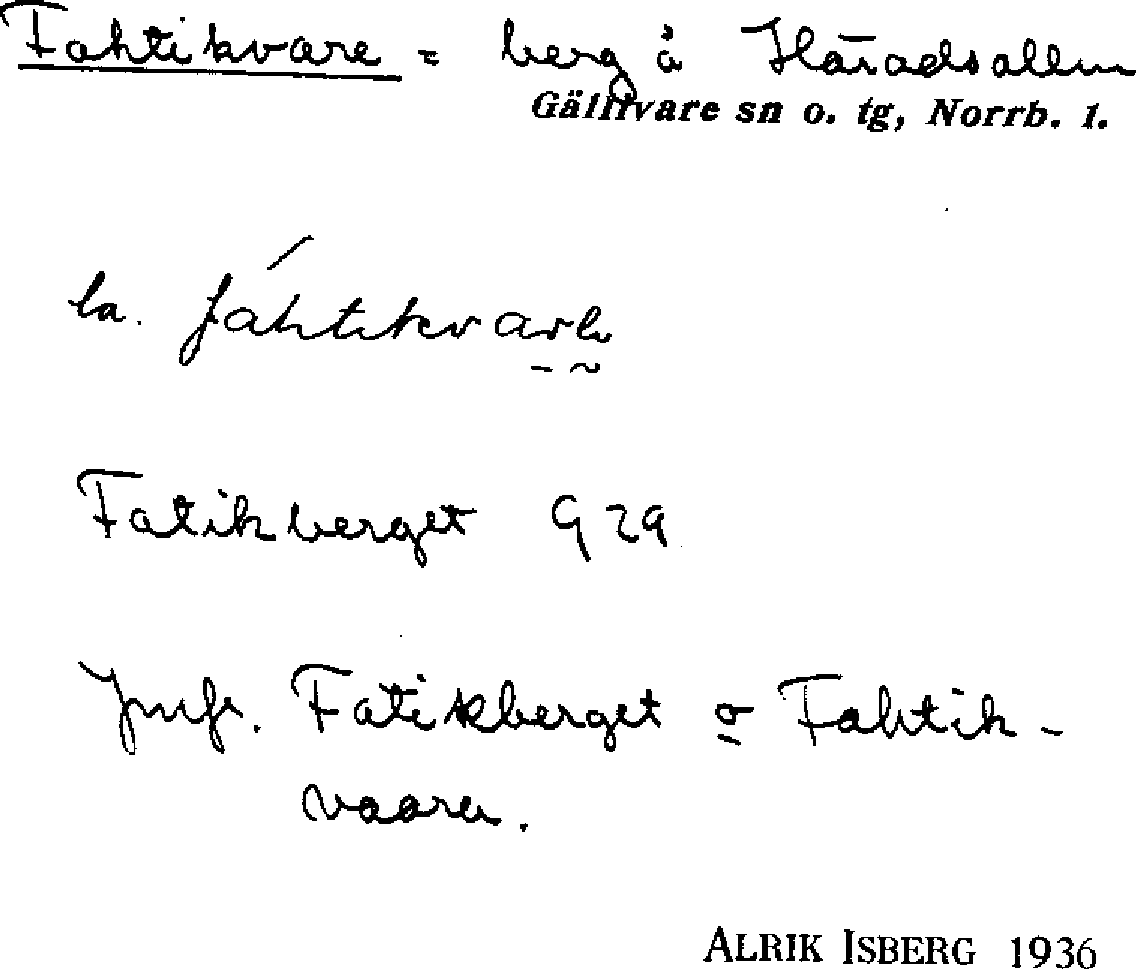 Fahtikvare = berg å Häradsallm
Gällivare sn o. tg, Norrb. l.
la. fáhtikvarē
Fatikberget G 29
Jmfr. Fatikberget o Fahtik-
vaara.
ALRIK ISBERG 1936